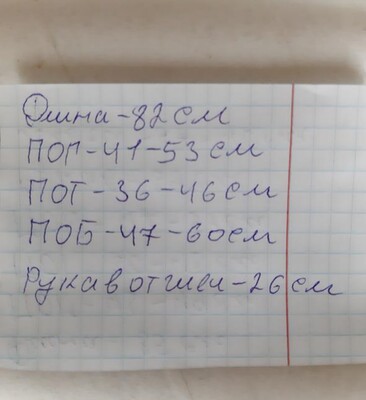 Длина-82см
ПОГ-41-53см
ПОТ-36-46см
ПОБ-47-60см
Рукав от шеи-26см